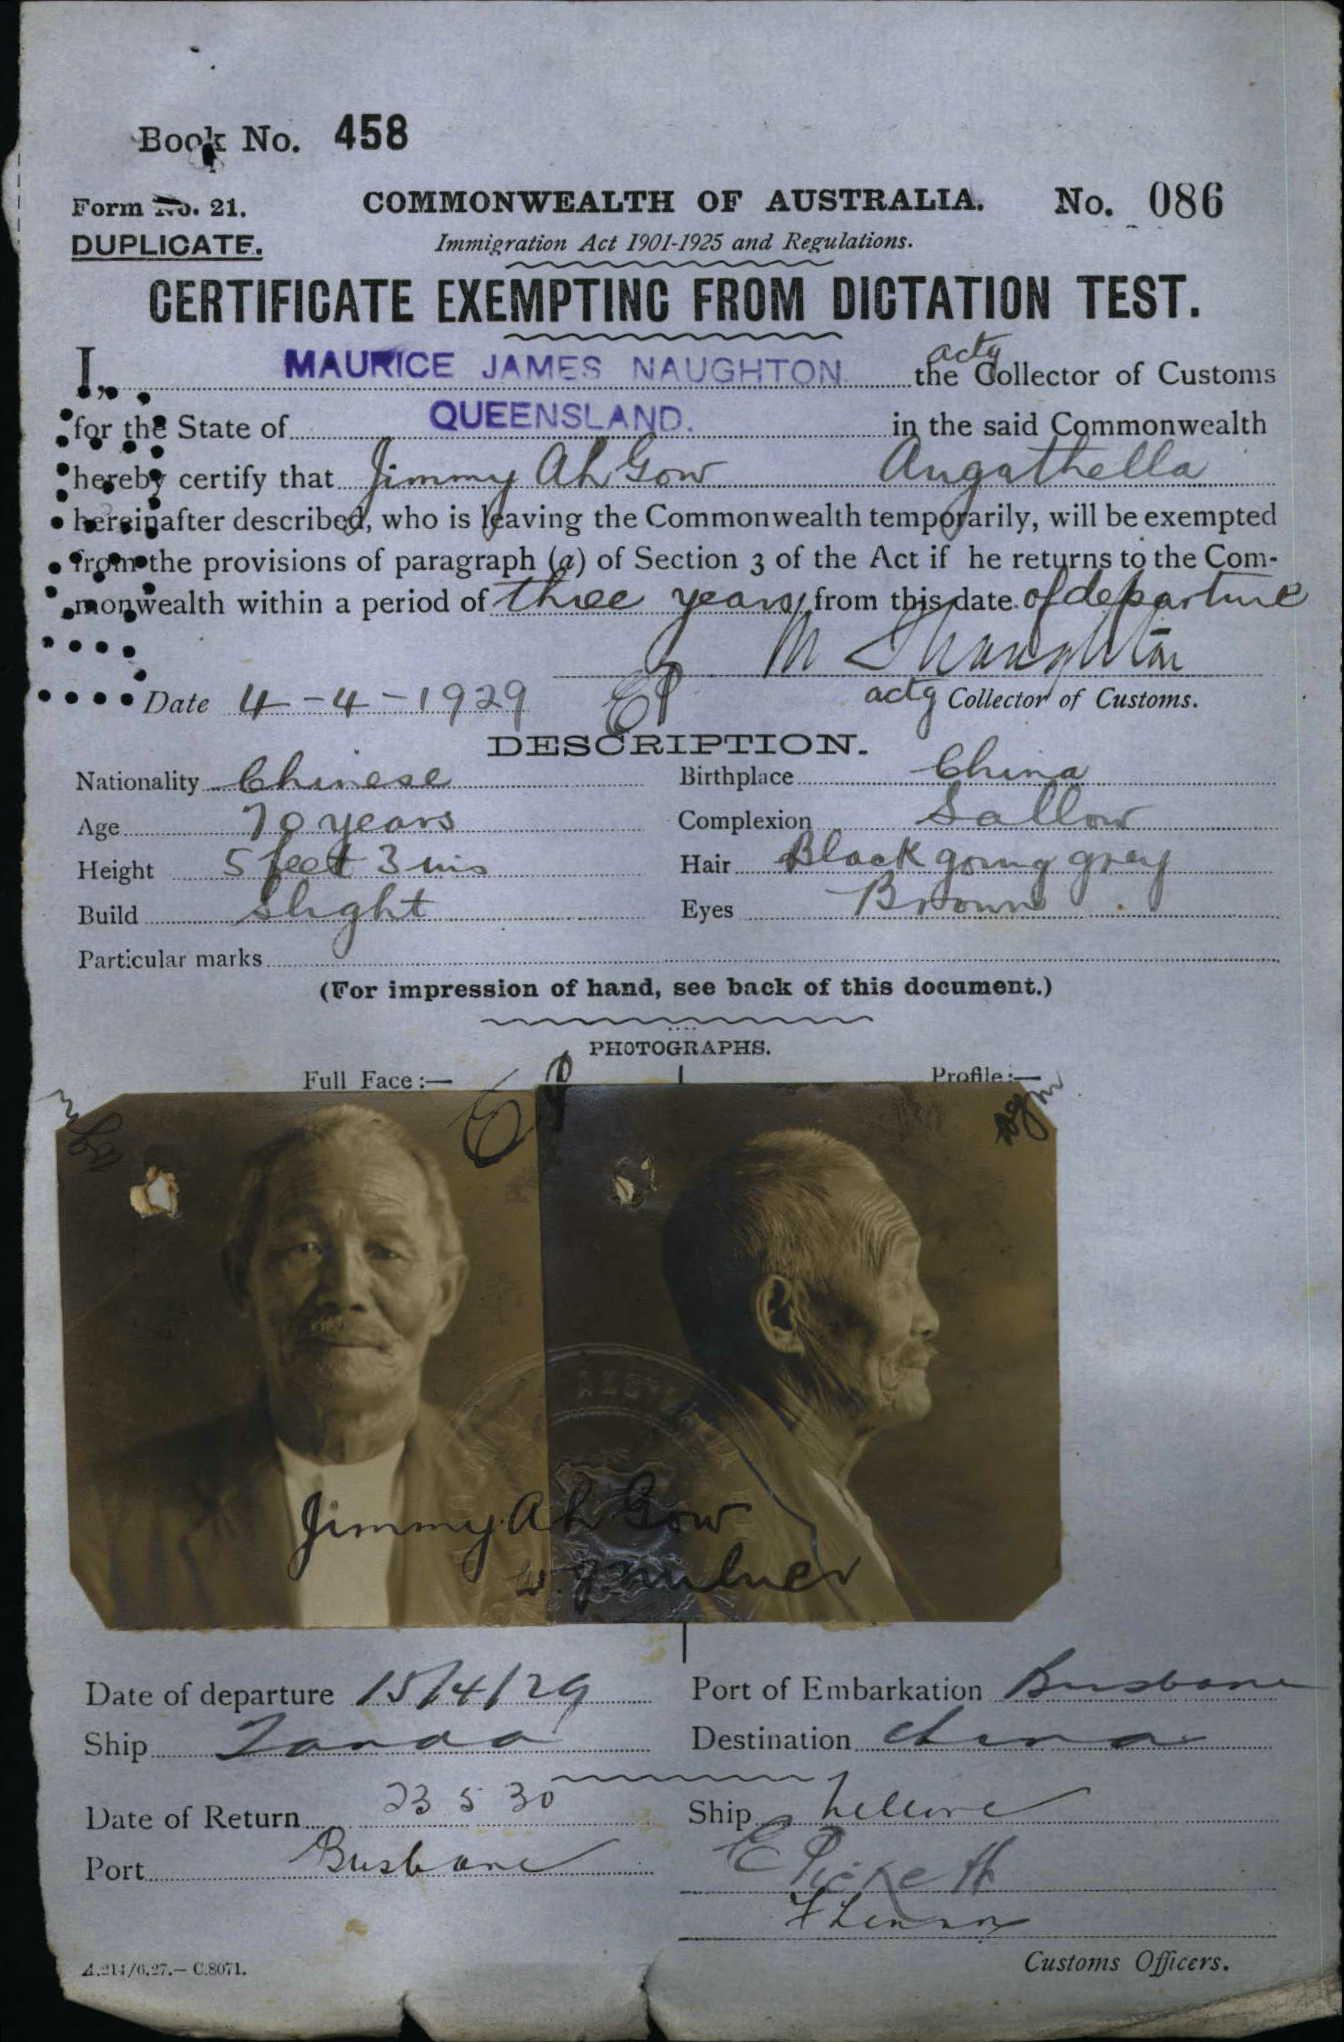 Book No. 458
Form No. 21.
COMMONWEALTH OF AUSTRALIA.
No. 086
DUPLICATE.
Immigration Act 1901-1925 and Regulations.
CERTIFICATE EXEMPTING FROM DICTATION TEST.
I, MAURICE JAMES NAUGHTON the actg Collector of Customs
for the State of QUEENSLAND. in the said Commonwealth
hereby certify that Jimmy Ah Gow Augathella
hereinafter described, who is leaving the Commonwealth temporarily, will be exempted
from the provisions of paragraph (a) of Section 3 of the Act if he returns to the Com-
monwealth within a period of three years from this date of departure
Date 4-4-1929 EP actg Collector of Customs.
DESCRIPTION.
Nationality Chinese Birthplace China
Age 70 years Complexion Sallow
Height 5 feet 3 ins Hair Black going grey
Build Slight Eyes Brown
Particular marks
(For impression of hand, see back of this document.)
PHOTOGRAPHS.
Full Face:— Profile:—
EP
Jimmy Ah Gow
Date of departure 15/4/29 Port of Embarkation Brisbane
Ship Tanda Destination China
Date of Return 23 5 30 Ship Nellore
Port Brisbane
E Pickett
Customs Officers.
A.214/6.27.—C.8071.